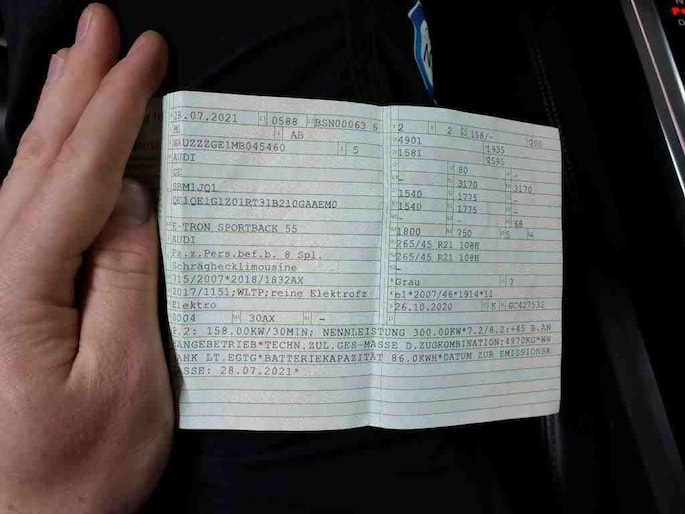 28.07.2021 0588 BSN00063 6
M1 AB
WAUZZZGE1MB045460 5
AUDI
GE
SBM1JQ1
QE1QE1G1Z01RT31B210GAAEM0
E-TRON SPORTBACK 55
AUDI
Fz.z.Pers.bef.b. 8 Spl.
Schräghecklimousine
715/2007*2018/1832AX
2017/1151;WLTP;reine Elektrofz
Elektro
0004 30AX -
2 2 158/- 200
4901 1935
1581 1595
- 80 -
- 3170 3170
1540 1775 -
1540 1775 -
- - 68
1800 750 5 -
265/45 R21 108H
265/45 R21 108H
-
Grau 7
e1*2007/46*1914*11
26.10.2020 K GC427532
P.2: 158.00KW/30MIN; NENNLEISTUNG 300.00KW*7.2/8.2:+45 B.AN
HÄNGEBETRIEB*TECHN.ZUL.GES-MASSE D.ZUGKOMBINATION:4970KG*WW
AHK LT.EGTG*BATTERIEKAPAZITÄT 86.0KWH*DATUM ZUR EMISSIONSK
LASSE: 28.07.2021*